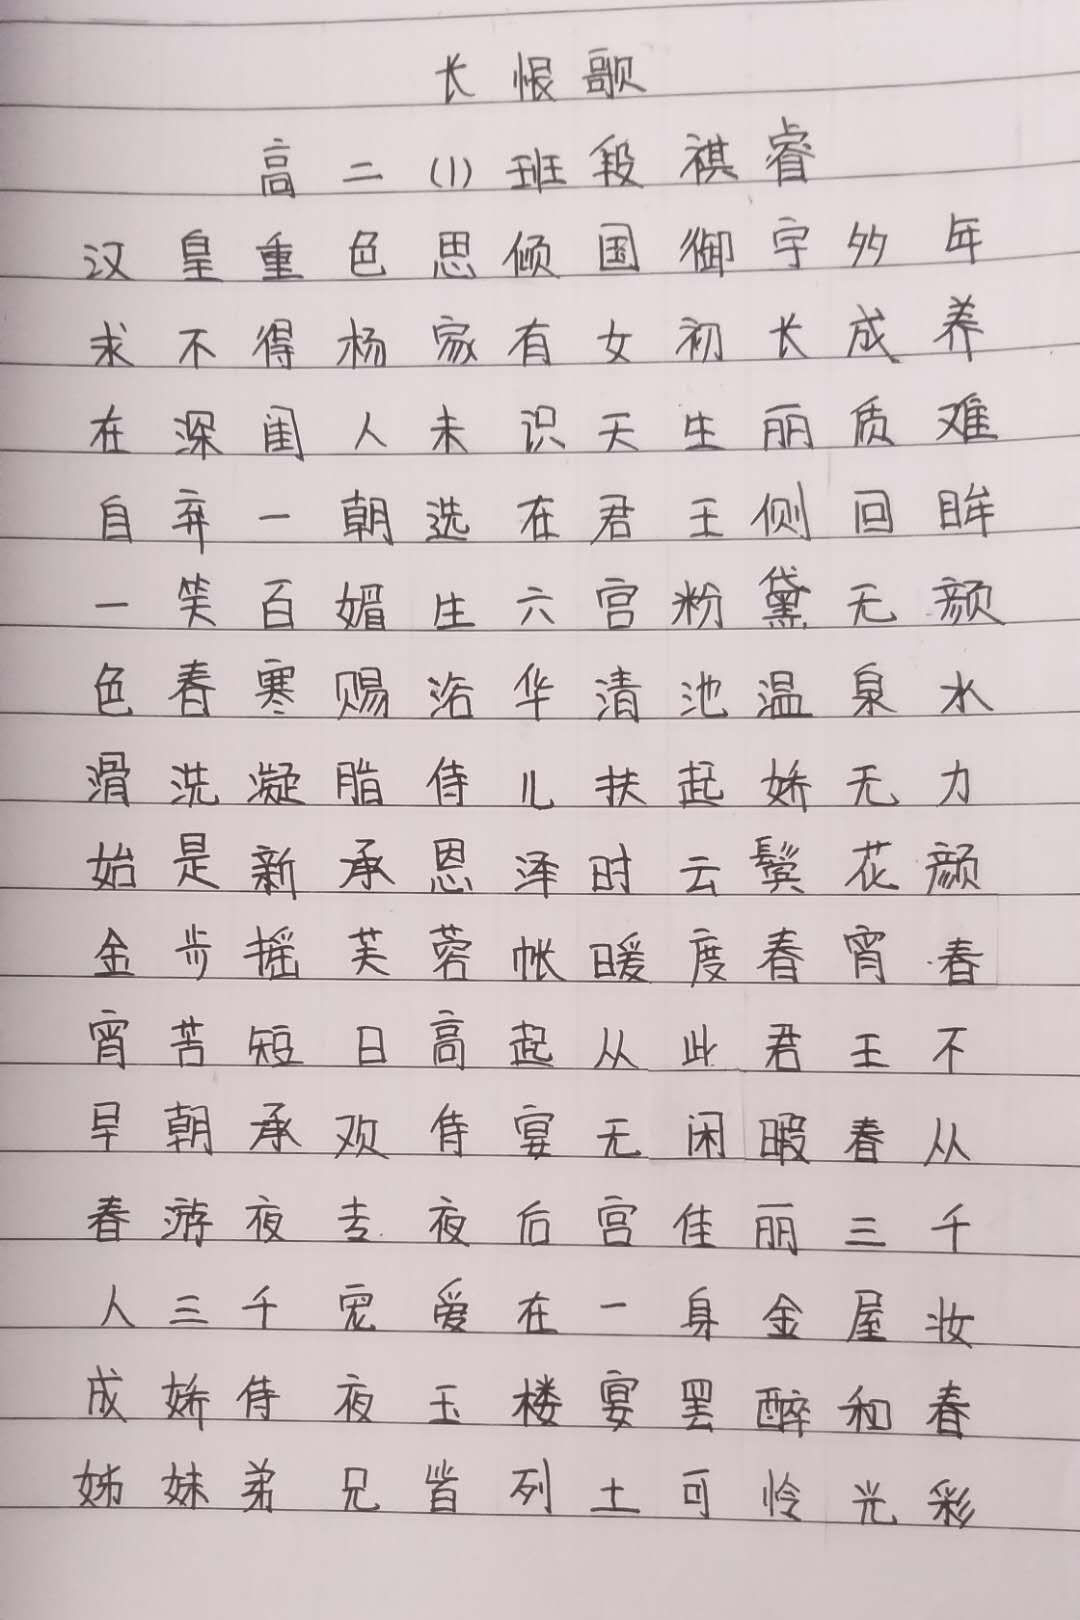 长恨歌
高二(1)班段祺睿
汉皇重色思倾国御宇多年
求不得杨家有女初长成养
在深闺人未识天生丽质难
自弃一朝选在君王侧回眸
一笑百媚生六宫粉黛无颜
色春寒赐浴华清池温泉水
滑洗凝脂侍儿扶起娇无力
始是新承恩泽时云鬓花颜
金步摇芙蓉帐暖度春宵春
宵苦短日高起从此君王不
早朝承欢侍宴无闲暇春从
春游夜专夜后宫佳丽三千
人三千宠爱在一身金屋妆
成娇侍夜玉楼宴罢醉和春
姊妹弟兄皆列土可怜光彩